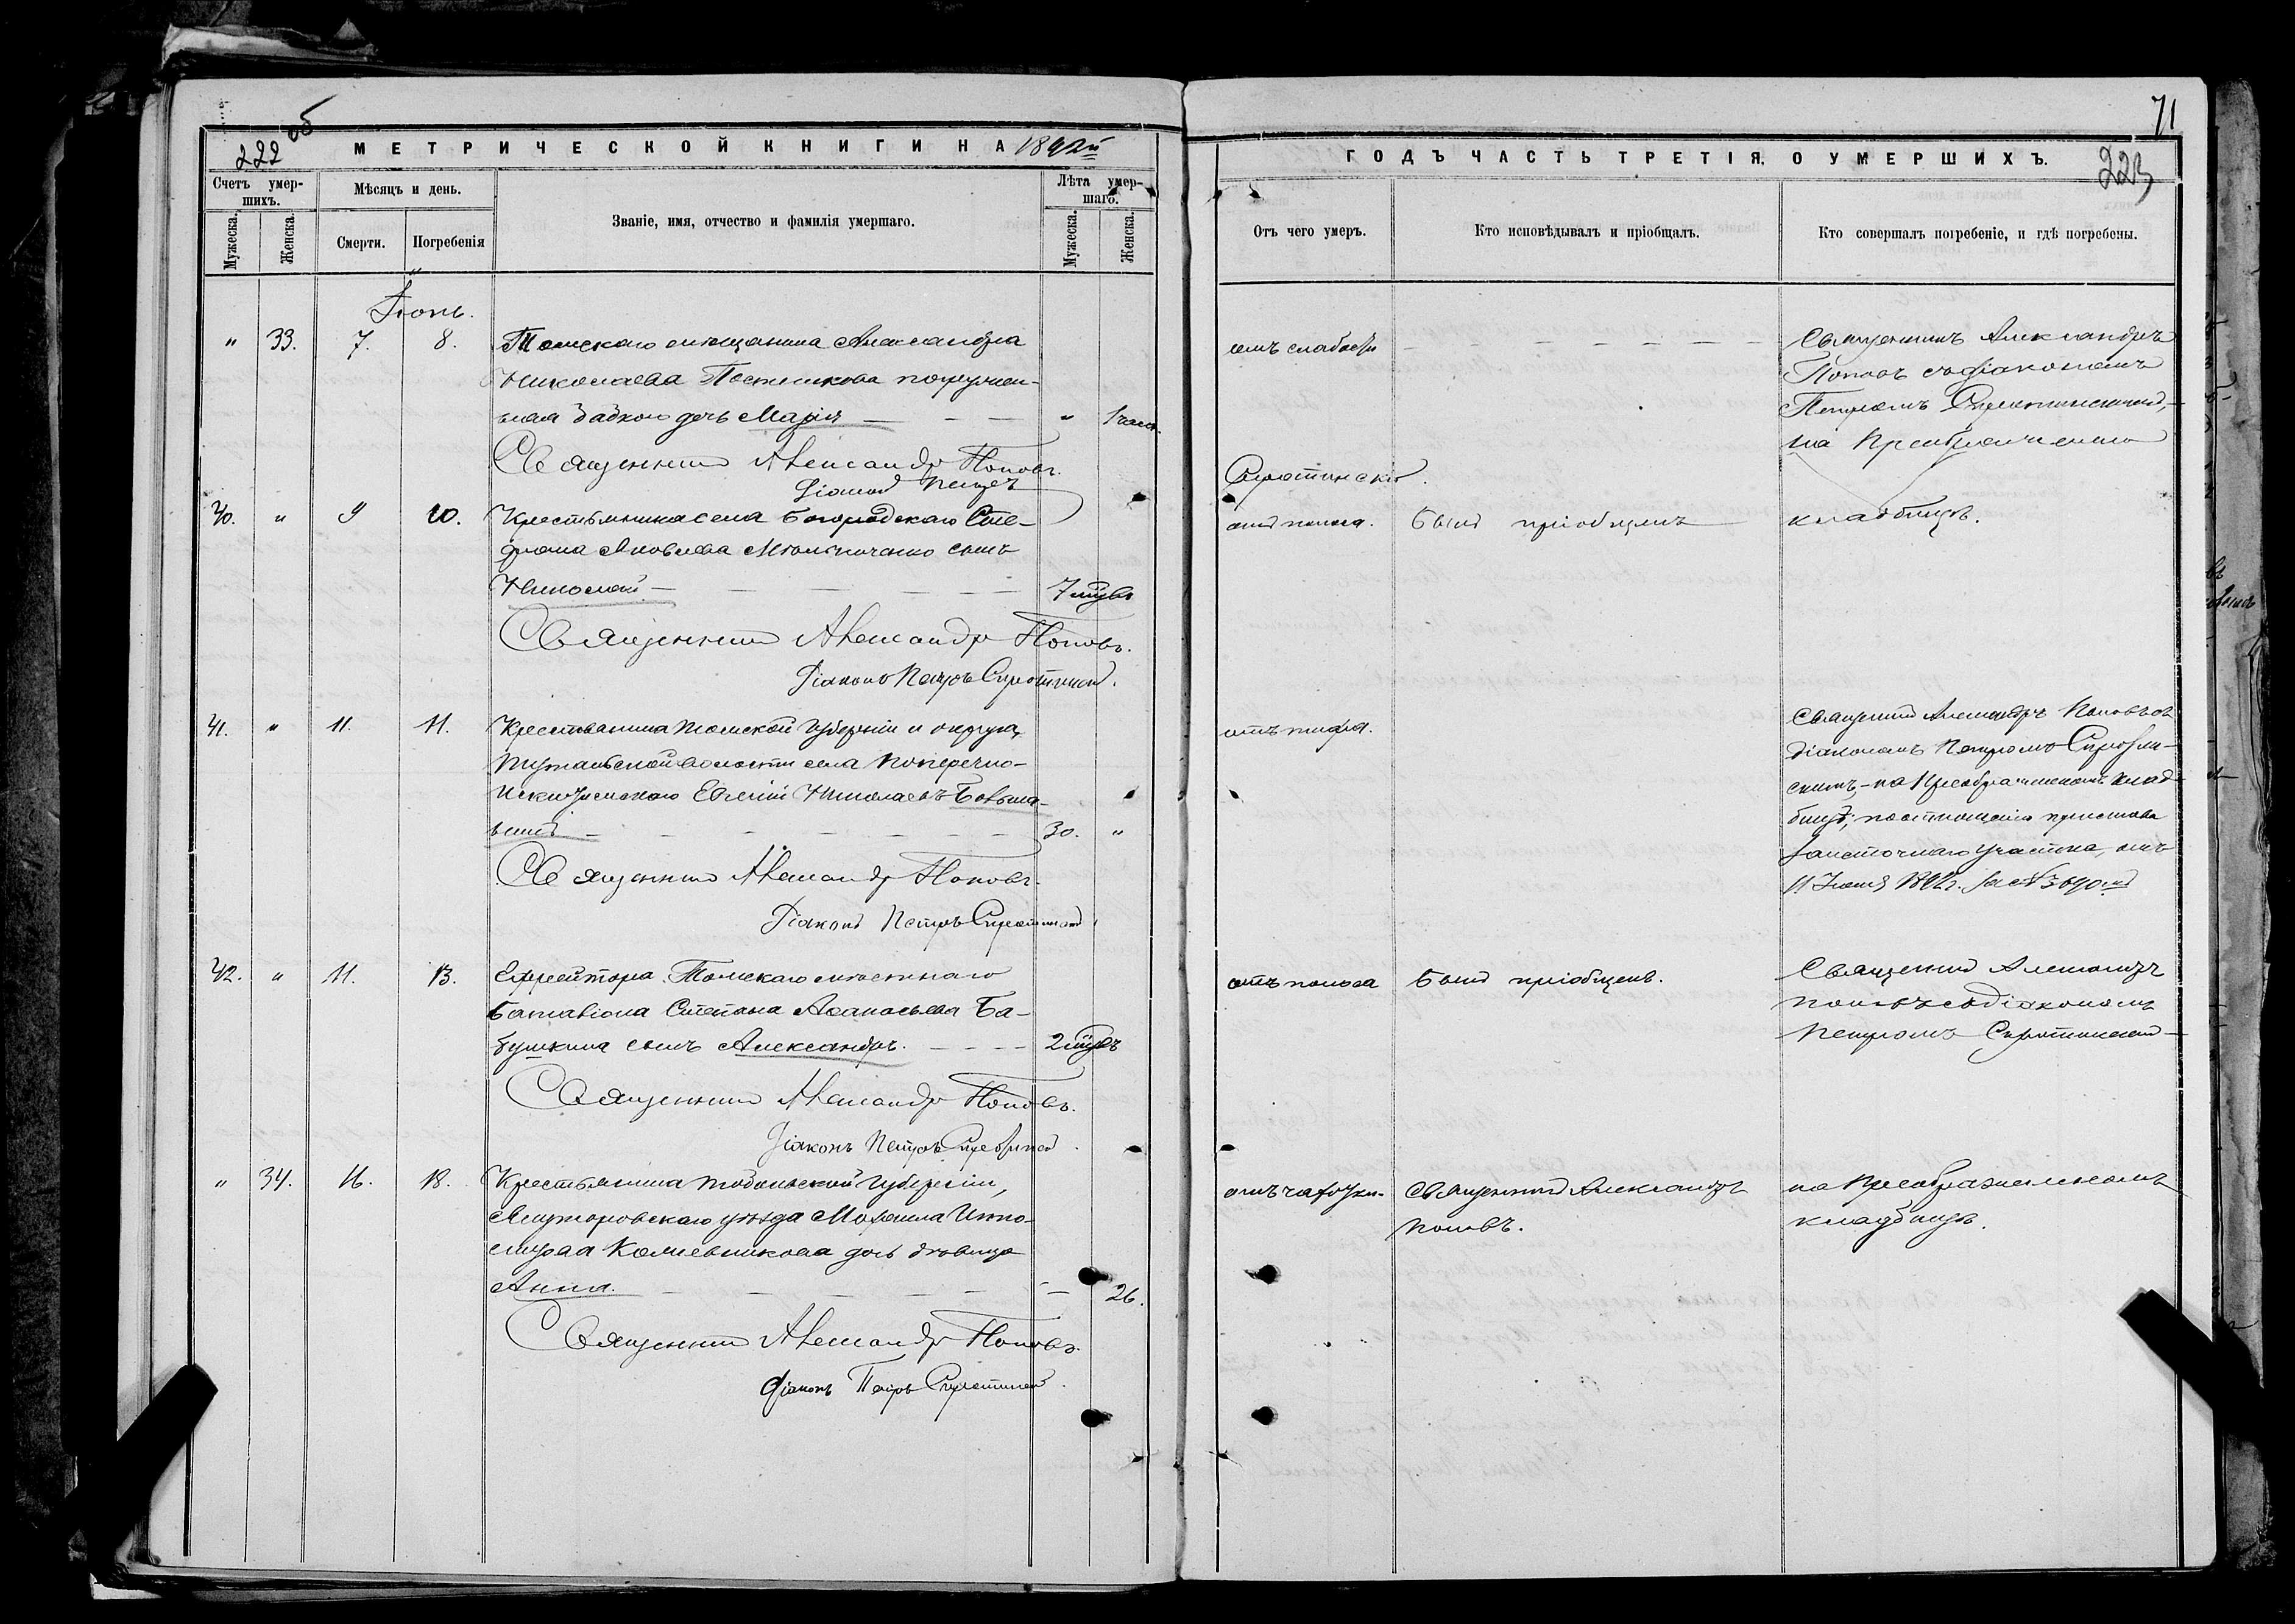 об
222
МЕТРИЧЕСКОЙ КНИГИ НА 1892й
Счетъ умер-
шихъ.
Мѣсяцъ и день.
Званіе, имя, отчество и фамилія умершаго.
Лѣта умер-
шаго.
Мужеска.
Женска.
Смерти.
Погребенія
Мужеска.
Женска.
Іюнь.
" 33. 7. 8. Томскаго мѣщанина Александра
Николаева
ная бабкою дочь Марія — " 1 час.
Священникъ Александръ Поповъ.
Діаконъ Петръ
Сиротинскій.
40. " 9 10. Крестьянина села Богородскаго Сте-
фана Яковлева сынъ
Николай — 7 мцвъ
Священникъ Александръ Поповъ.
Діаконъ Петръ Сиротинскій.
41. " 11. 11. Крестьянина Томской губерніи и округа,
волости села Поперечно-
Искитимскаго Евгеній Николаевъ
30. "
Священникъ Александръ Поповъ.
Діаконъ Петръ Сиротинскій
42. " 11. 13. Ефрейтора Томскаго мѣстнаго
Баталіона Степана Аѳанасьева Ба-
бушкина сынъ Александръ. — 2 мцвъ
Священникъ Александръ Поповъ.
Діаконъ Петръ Сиротинскій.
" 34. 16. 18. Крестьянина Тобольской губерніи,
Ялуторовскаго уѣзда Михаила
дочь дѣвица
Анна. — 26.
Священникъ Александръ Поповъ.
Діаконъ Петръ Сиротинскій.
71
ГОДЪ ЧАСТЬ ТРЕТІЯ, О УМЕРШИХЪ.
223
Отъ чего умеръ.
Кто исповѣдывалъ и пріобщалъ.
Кто совершалъ погребеніе, и гдѣ погребены.
отъ слабости — Священникъ Александръ
Поповъ съ діакономъ
Петромъ Сиротинскимъ,
на Преображенскомъ
отъ поноса. Былъ пріобщенъ кладбищѣ.
отъ тифа. Священникъ Александръ Поповъ съ
діакономъ Петромъ Сиротин-
скимъ, — на Преображенскомъ клад-
бищѣ; по отношенію пристава
участка, отъ
11 Іюня 1892 г. за № 3690.
отъ поноса Былъ пріобщенъ. Священникъ Александръ
Поповъ съ діакономъ
Петромъ Сиротинскимъ —
отъ чахотки. Священникъ Александръ на Преображенскомъ
Поповъ. кладбищѣ.